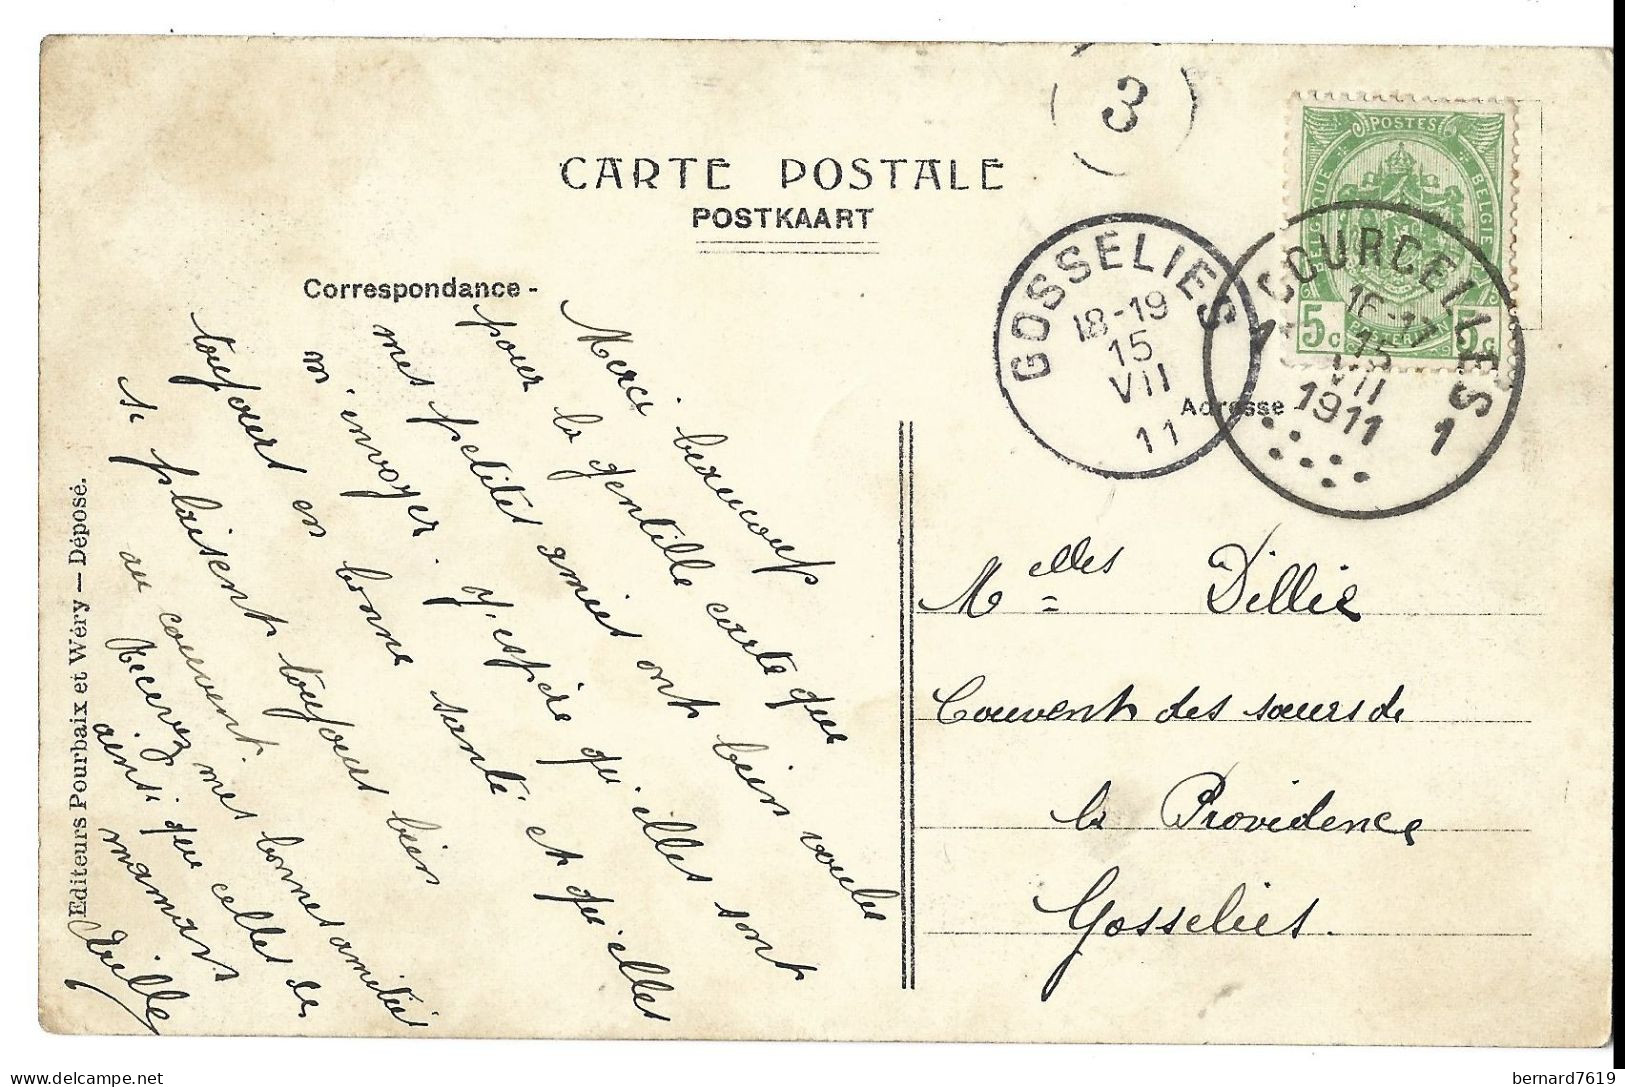 3
CARTE POSTALE
POSTKAART
Correspondance -
POSTES
BELGIQUE
BELGIE
5 c
POSTERIJEN
5 c
GOSSELIES
18-19
15
VII
11
COURCELLES
16-17
15
VII
1911
1 1
Adresse
Merci beaucoup
pour la gentille carte que
mes petites amies ont bien voulu
m'envoyer. J'espère qu'elles sont
toujours en bonne santé et qu'elles
si plaisent toujours bien
au couvent.
Recevez mes bonnes amitiés
ainsi que celles de
maman
Melles Dillie
Couvent des sœurs de
la Providence
Gosselies.
Editeurs Pourbaix et Wéry — Déposé.
delcampe.net
bernard7619